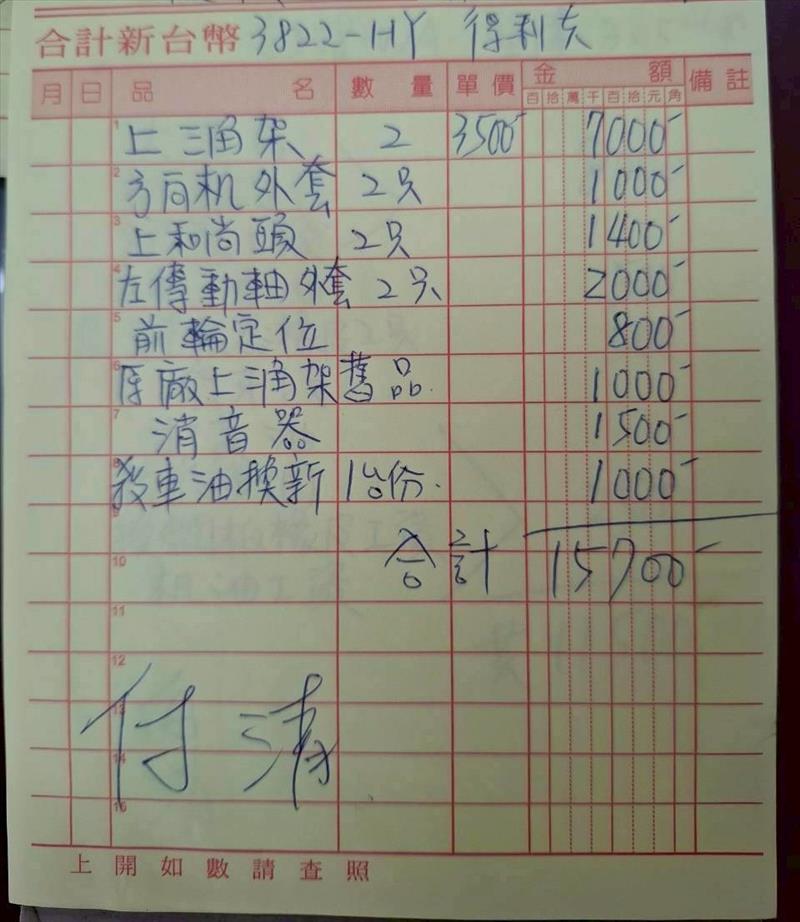 合計新台幣 3822-HY 得利卡
月 日 品名 數量 單價 金額 備註
百 拾 萬 千 百 拾 元 角
1 上三角架 2 3500- 7000-
2 方向机外套 2只 1000-
3 上和尚頭 2只 1400-
4 左傳動軸外套 2只 2000-
5 前輪定位 800-
6 原廠上三角架舊品. 1000-
7 消音器 1500-
8 煞車油換新 1台份. 1000-
9
10 合計 15700-
11
12
13 付清
14
15
上開如數請查照